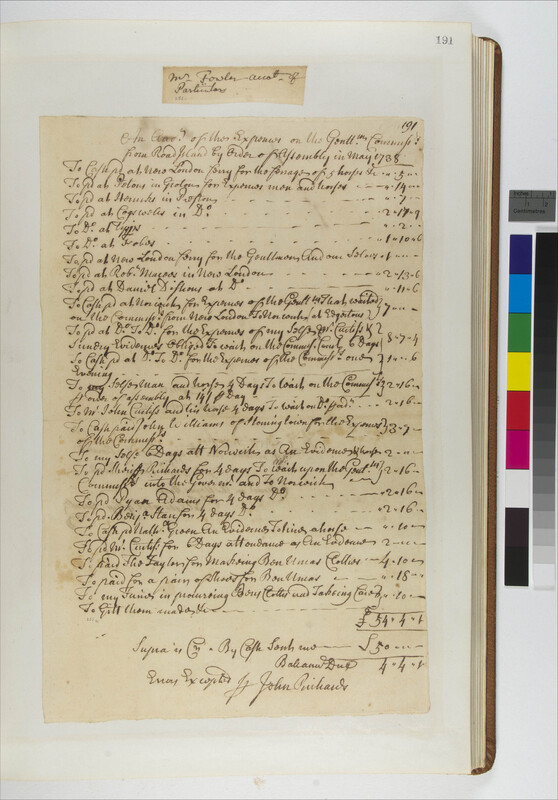 191
Mr Fowler accot. of
Particulars
191
An Acco. of the Expenses on the Gentlmn Commissrs
from Road Island by Order of Assembly in May 1738
To Cash pd at New London ferry for the ferrage of 5 horses &c " 5 "
To pd at in Groton for Expenses men and horses " 14
To pd at in Preston " 7
To pd at Cogswels in Do. 2 " 17 " 9
To Do. at Typs " 2
To Do. at Fobes 1 " 10 " 6
To pd at New London ferry for the Gentlmen And our Selves 1 "
To pd at Robt. Macoes in New London 2 " 13 " 6
To pd at Daniel at Do. " 11 " 6
To Cash pd at Norwich for Expenses of the Gentlmn that waited
on the Commissrs from New London To Norwich at Edgertons 7
To pd at Do. To Do. for the Expenses of my Selfe Mr. Curtiss &
Sundry Evidences Obliged To wait on the Commiss. Court 6 Days 8 " 7 " 4
To Cash pd at Do. To Do. for the Expenses of the Commissrs one
Evening
To my Selfe man and horses 4 Days To wait on the Commissrs
of assembly at 14/ p Day 2 " 16
To Mr. John Curtiss and his horse 4 days To wait on Do. 2 " 16
To Cash paid John Williams of Stoningtown for the Expenses
of the Commissrs 3 " 7
To my Selfe 6 Days att Norwich as An Evidence & horse 2
To pd Sheriff Richards for 4 days To wait upon the Gentlmn
Commissrs into the Governmt. and To Norwich 2 " 16
To pd Adams for 4 days Do. 2 " 16
To pd Benj. for 4 Days Do. 2 " 16
To Cash pd Nathll. Green An Evidence & horse " 10
To pd Mr. Curtiss for 6 Days attendance as An Evidence 2
To paid The Taylor for making Ben Uncas Clothes 4 " 10
To paid for a pair of Shoes for Ben Uncas " 18
To my Time in procuring Bens Clothes and Takeing Care " 10
To Gitt them made &c
£ 54 " 4 " 1
Supra is Cr. By Cash Sent me £ 50
Ballance Due 4 " 4 " 1
Errors Excepted p John Richards